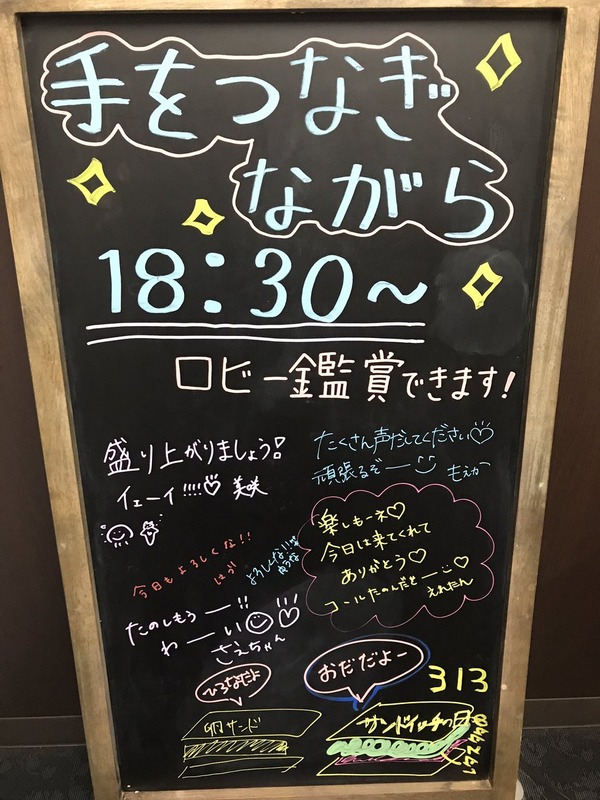 手をつなぎ
ながら
18:30~
ロビー鑑賞できます!
盛り上がりましょう!
イェーイ!!!!♡ 美咲
たくさん声だしてください♡
頑張るぞー もえか
今日もよろしくな!!
はう
よろしくな!!
楽しもーネ♡
今日は来てくれて
ありがとう♡
コールたのんだぞー♡
えれたん
たのしもうー!!
わーい
さえちゃん
ひろなだよ
卵サンド
おだだよー
サンドイッチの日
313